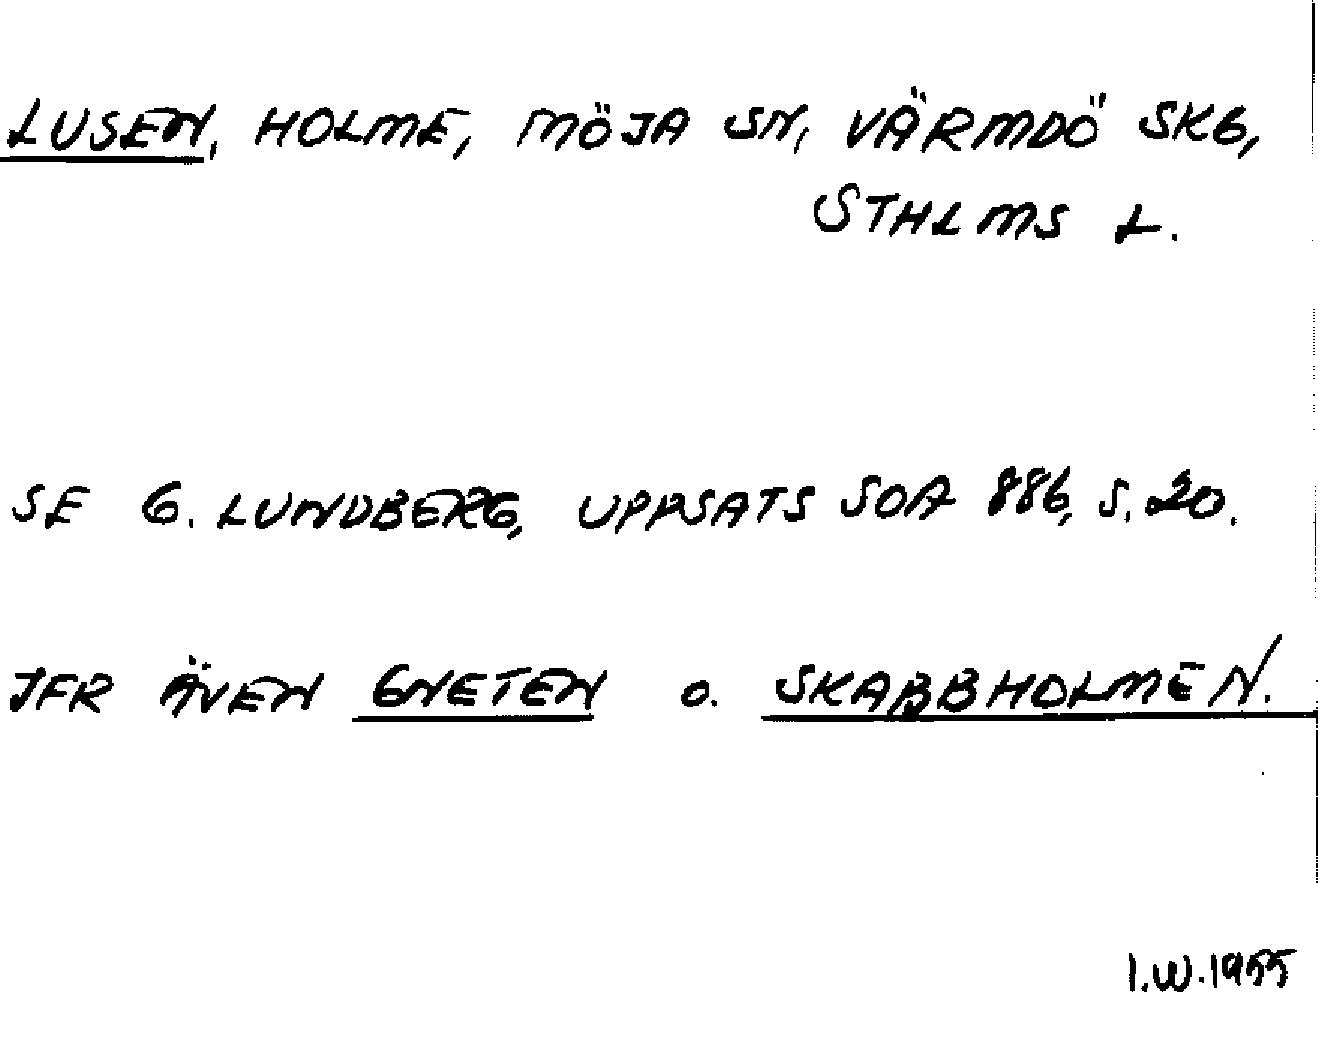 LUSEN, HOLME, MÖJA SN, VÄRMDÖ SKG,
STHLMS L.
SE G. LUNDBERG, UPPSATS SOA 886, S. 20.
JFR ÄVEN GNETEN o. SKABBHOLMEN.
I.W. 1955